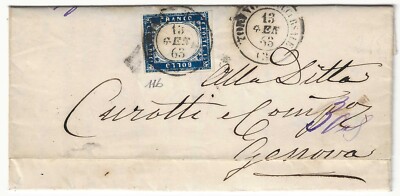 FRANCO
BOLLO
13
GEN
63
TORINO
13
GEN
63
116
Alla Ditta
Curotti e Comp.
Genova